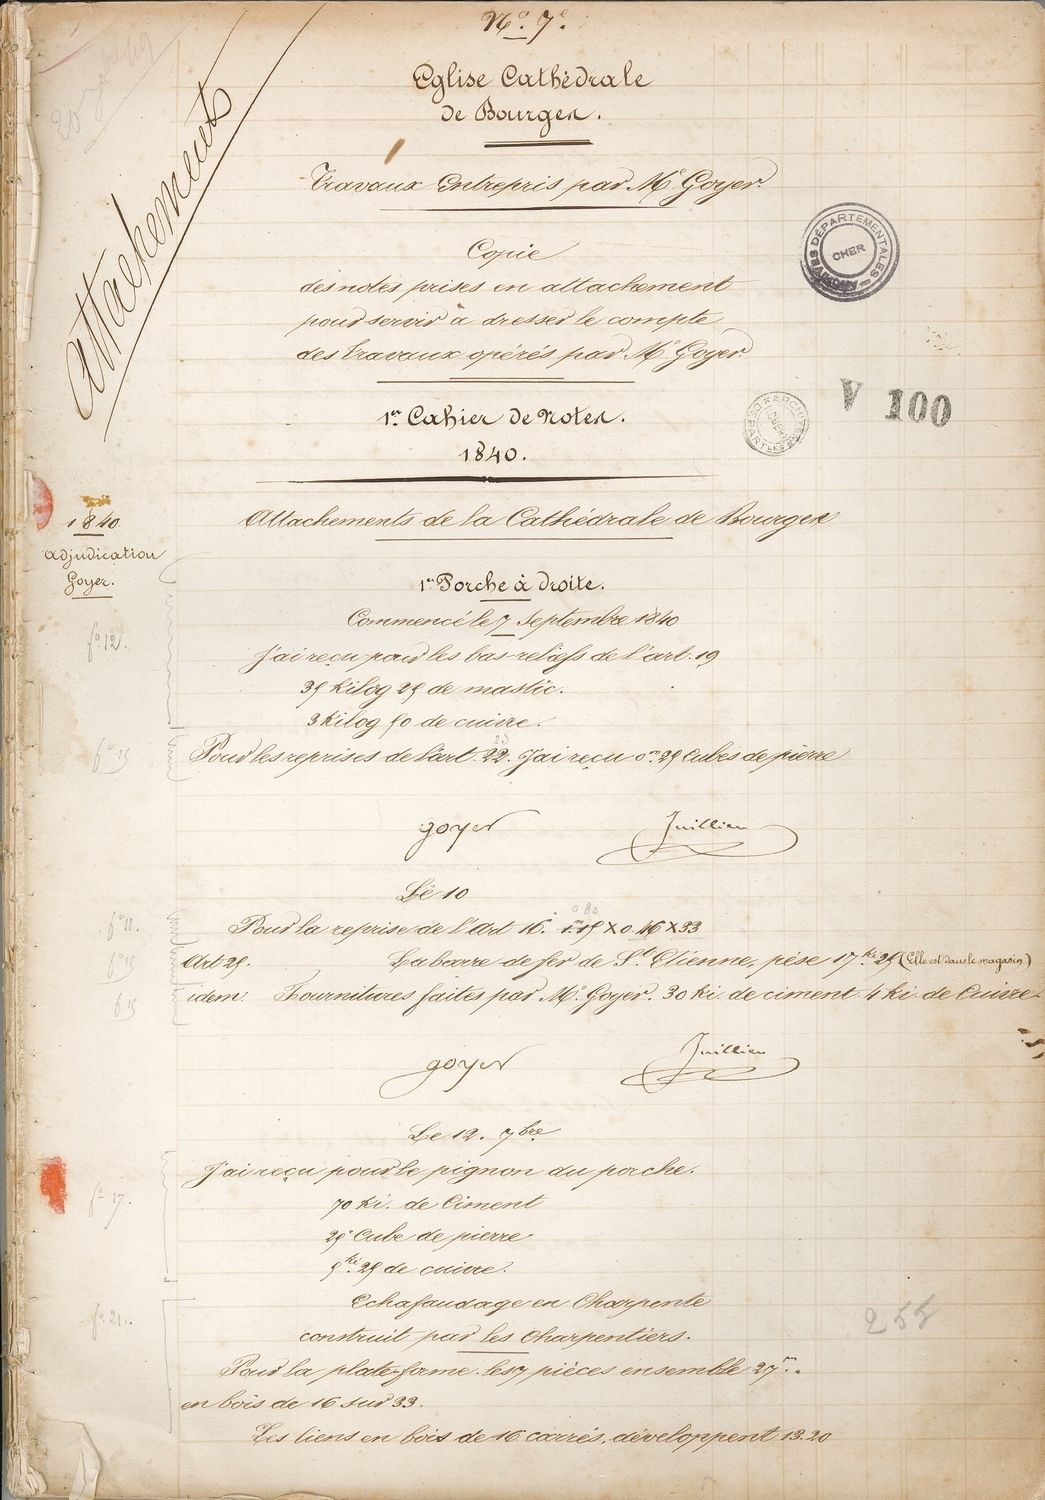 N° 7e.
Eglise Cathédrale
de Bourges.
Attachements
Travaux Entrepris par Mr Goyer.
Copie
des notes prises en attachement
pour servir à dresser le compte
des travaux opérés par Mr Goyer
ARCHIVES DÉPARTEMENTALES
CHER
V 100
1er Cahier de Notes.
1840.
1840
adjudication
Goyer.
Attachements de la Cathédrale de Bourges
1er Porche à droite.
Commencé le 7 Septembre 1840
fo 12.
J'ai reçu pour les bas-reliefs de l'art. 19
35 Kilog 25 de mastic.
3 Kilog 50 de cuivre.
23
fo 15 Pour les reprises de l'art. 22. J'ai reçu 0m 25 Cubes de pierre
goyer Juillien
Le 10
0 80
fo 11. Pour la reprise de l'Art 16. 1m15 X 0.46 X 33
fo 15 Art 25. La barre de fer de St Etienne, pèse 17ki 25 (Elle est dans le magasin)
fo 15 idem. Fournitures faites par Mr Goyer. 30 ki. de ciment 4 ki. de Cuivre.
goyer Juillien
Le 12. 7bre
J'ai reçu pour le pignon du porche.
fo 17. 70 ki. de Ciment
25c Cube de pierre
5ki. 25 de cuivre.
fo 21. Echafaudage en Charpente
255
construit par les Charpentiers.
Pour la plate-forme. les 7 pièces ensemble 27m..
en bois de 16 sur 33.
Les liens en bois de 16 carrés, développent 13.20